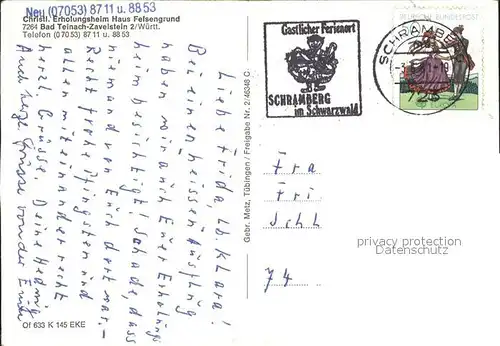 Neu (07053) 87 11 u. 88 53
Christl. Erholungsheim Haus Felsengrund
7264 Bad Teinach-Zavelstein 2/Württ.
Telefon (07 05 3) 87 11 u. 88 53
Liebe Frida, lb. Klara!
Bei einem heissen Ausflug
haben wir auch Euer Erholungs-
heim besichtigt! Schade, dass
niemand von Euch dort war.-
Recht frohe Pfingsten und
allen miteinander recht
herzl. Grüsse. Deine Hedwig
Auch herzl. Grüsse von der
Of 633 K 145 EKE
Gebr. Metz, Tübingen / Freigabe Nr. 2/46348 C
Gastlicher Ferienort
SCHRAMBERG
im Schwarzwald
SCHRAMBERG
DEUTSCHE BUNDESPOST
Fra
Fri
Schl
74
privacy protection
Datenschutz